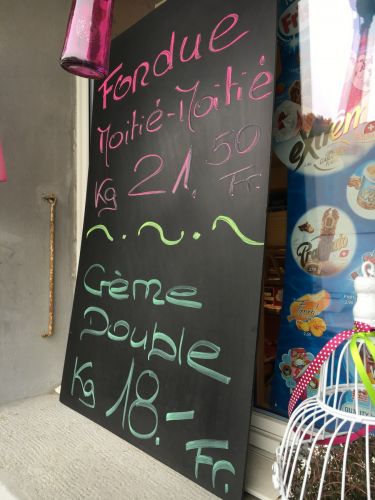 FonDue
Moitié-Moitié
Kg 21.50 Fr.
~.~.~
Crème
Double
Kg 18.- Fr.
extrême